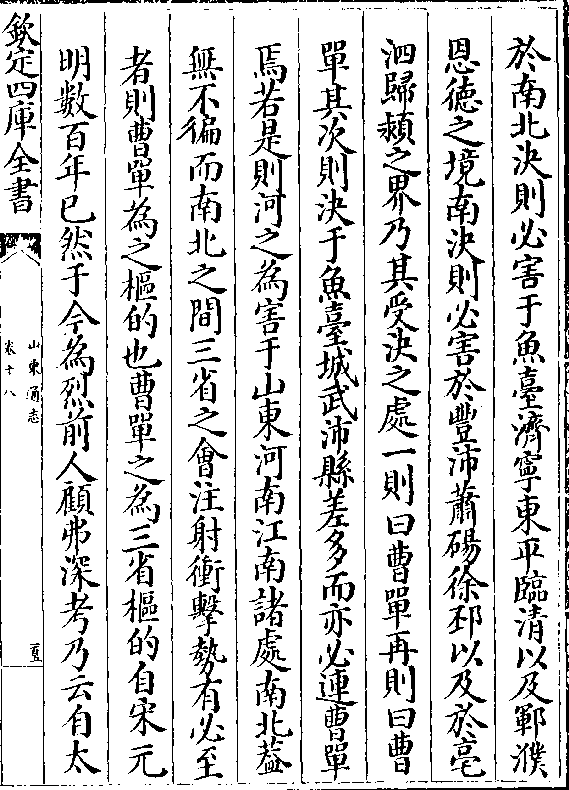 於南北決則必害于魚臺濟寧東平臨清以及鄆濮
恩徳之境南決則必害於豐沛蕭碭徐邳以及於亳
泗歸潁之界乃其受決之處一則曰曹單再則曰曹
單其次則決于魚臺城武沛縣差多而亦必連曹單
焉若是則河之為害于山東河南江南諸處南北葢
無不徧而南北之間三省之會注射衝擊勢有必至
者則曹單為之樞的也曹單之為三省樞的自宋元
明數百年已然于今為烈前人顧弗深考乃云自太
欽定四庫全書
山東通志
卷十八